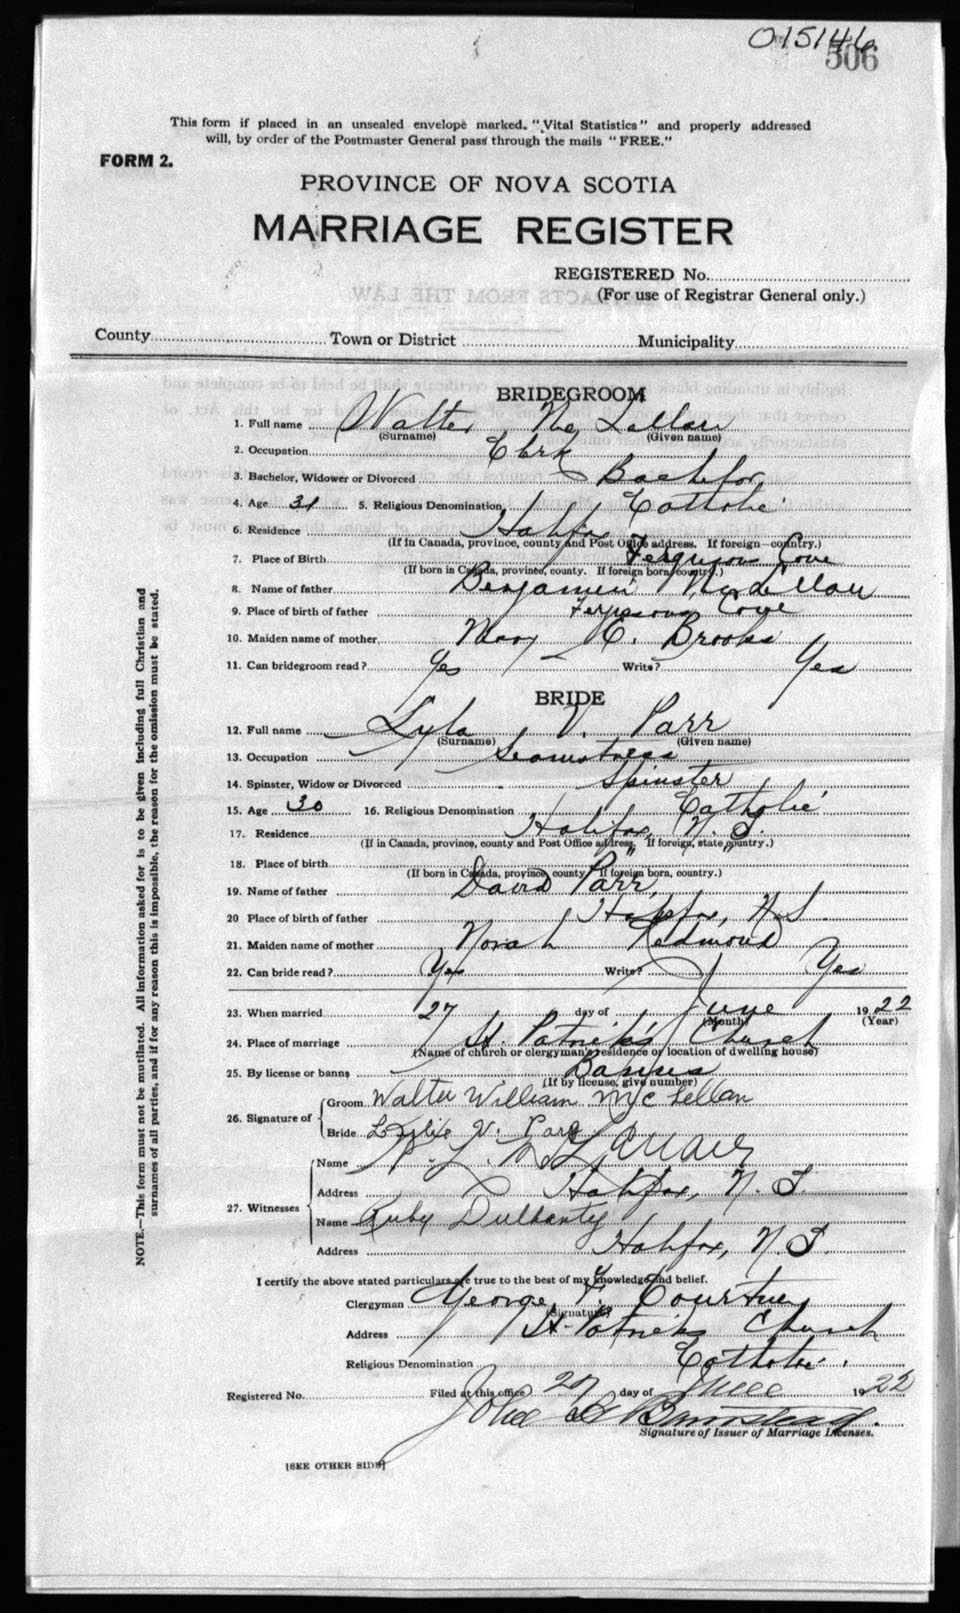 015146
506
This form if placed in an unsealed envelope marked. "Vital Statistics" and properly addressed
will, by order of the Postmaster General pass through the mails "FREE."
FORM 2.
PROVINCE OF NOVA SCOTIA
MARRIAGE REGISTER
REGISTERED No.
(For use of Registrar General only.)
County Town or District Municipality
BRIDEGROOM
1. Full name Walter Mc Lellan
(Surname) (Given name)
2. Occupation Clerk
3. Bachelor, Widower or Divorced Bachelor
4. Age 31 5. Religious Denomination Catholic
6. Residence Halifax
(If in Canada, province, county and Post Office address. If foreign—country.)
7. Place of Birth Ferguson Cove
(If born in Canada, province, county. If foreign born, country.)
8. Name of father Benjamin MacLellan
9. Place of birth of father Fergusons Cove
10. Maiden name of mother Mary E. Brooks
11. Can bridegroom read? Yes Write? Yes
BRIDE
12. Full name Lyla V. Parr
(Surname) (Given name)
13. Occupation Seamstress
14. Spinster, Widow or Divorced Spinster
15. Age 30 16. Religious Denomination Catholic
17. Residence Halifax, N. S.
(If in Canada, province, county and Post Office address. If foreign, state country.)
18. Place of birth " "
(If born in Canada, province, county. If foreign born, country.)
19. Name of father David Parr,
20 Place of birth of father Halifax, N.S.
21. Maiden name of mother Norah Redmond
22. Can bride read? Yes Write? Yes
23. When married 27 day of June 1922
(Month) (Year)
24. Place of marriage St. Patrick's Church
(Name of church or clergyman's residence or location of dwelling house)
25. By license or banns Banns
(If by license, give number)
26. Signature of Groom Walter William McLellan
Bride V. Parr
27. Witnesses Name
Address Halifax, N. S.
Name Ruby Dulhanty
Address Halifax, N. S.
I certify the above stated particulars are true to the best of my knowledge and belief.
Clergyman George F. Courtney
(Signature)
Address St. Patricks Church
Religious Denomination Catholic.
Registered No. Filed at this office 27 day of June 1922
John B Bumstead.
Signature of Issuer of Marriage Licenses.
[SEE OTHER SIDE]
NOTE.—This form must not be mutilated. All information asked for is to be given including full Christian and
surnames of all parties, and if for any reason this is impossible, the reason for the omission must be stated.